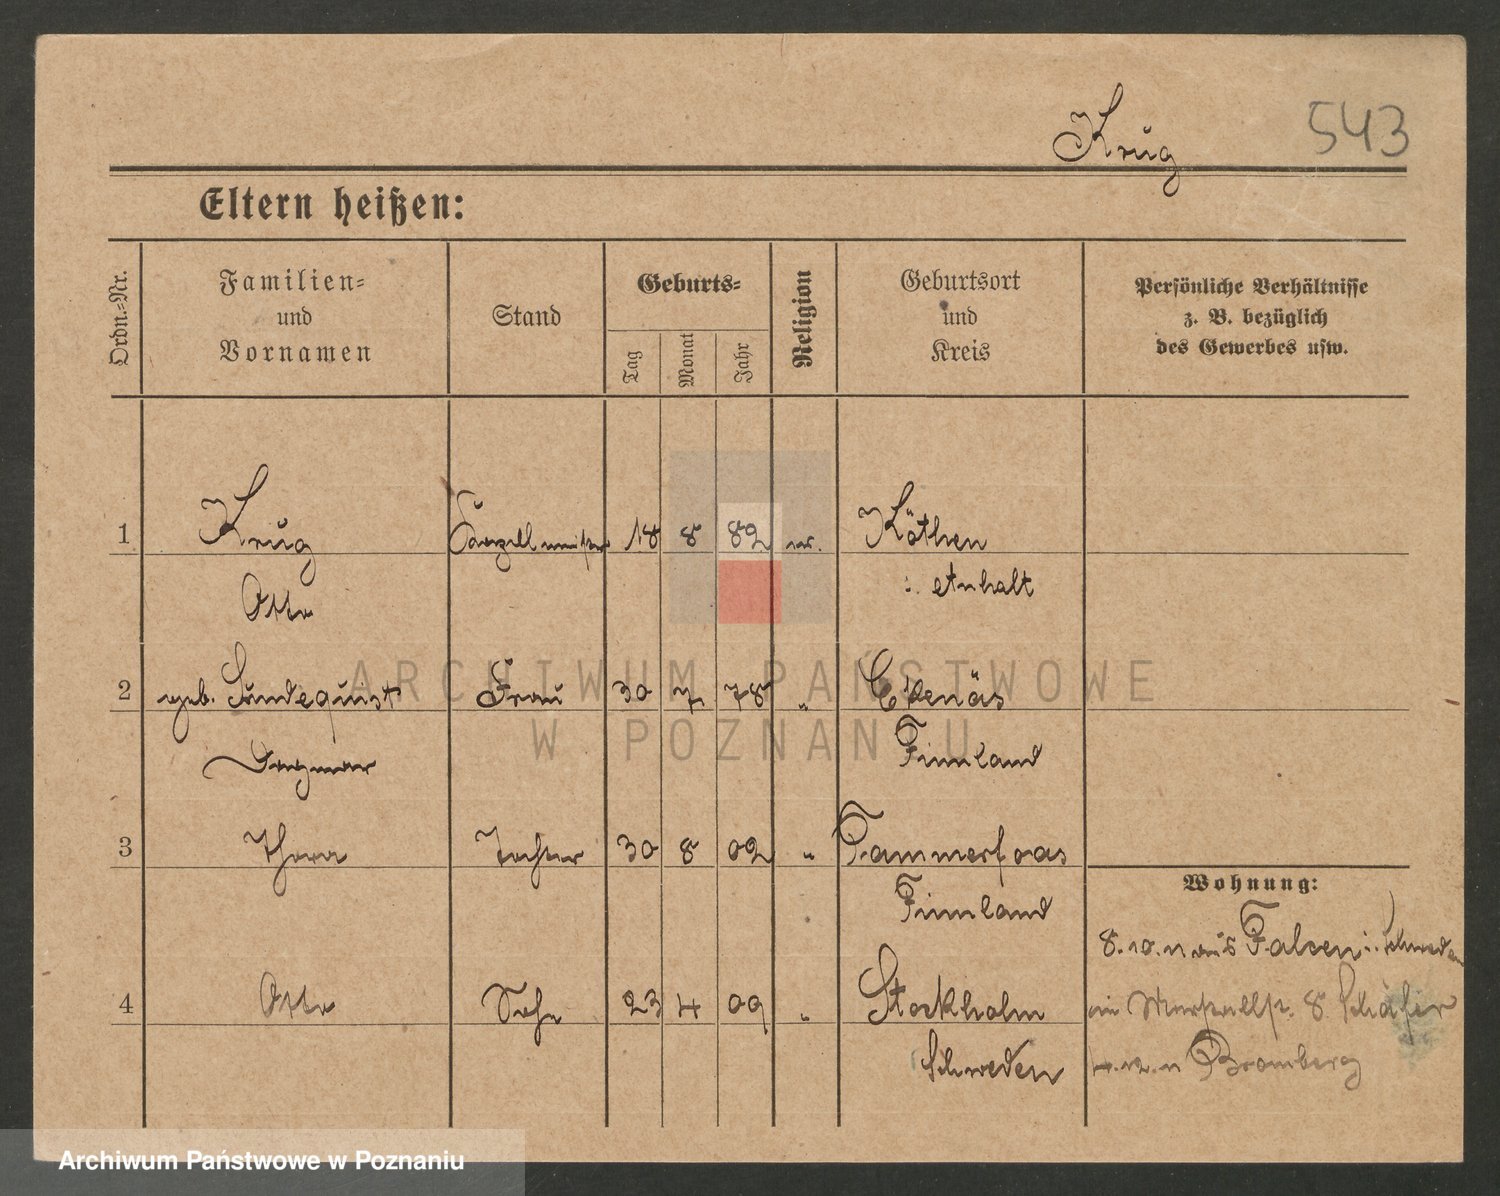 Krug
543
Eltern heißen:
Ordn.-Nr.
Familien- und Vornamen
Stand
Geburts-
Tag
Monat
Jahr
Religion
Geburtsort und Kreis
Persönliche Verhältnisse
z. B. bezüglich
des Gewerbes usw.
1 Krug 18 8 82 Köthen
Otto i. Anhalt
2 geb. Sundequist Frau 30 7 78 " Ekenäs
Dagmar Finnland
3 Thora Tochter 30 8 02 " Tammerfoas
Finnland
Wohnung:
8. 10. 11 aus Falcen i. Schweden
4 Otto Sohn 23 4 09 " Stockholm
8 Schäfer
Schweden
4. 12. 11 Bromberg
ARCHIWUM PAŃSTWOWE
W POZNANIU
Archiwum Państwowe w Poznaniu